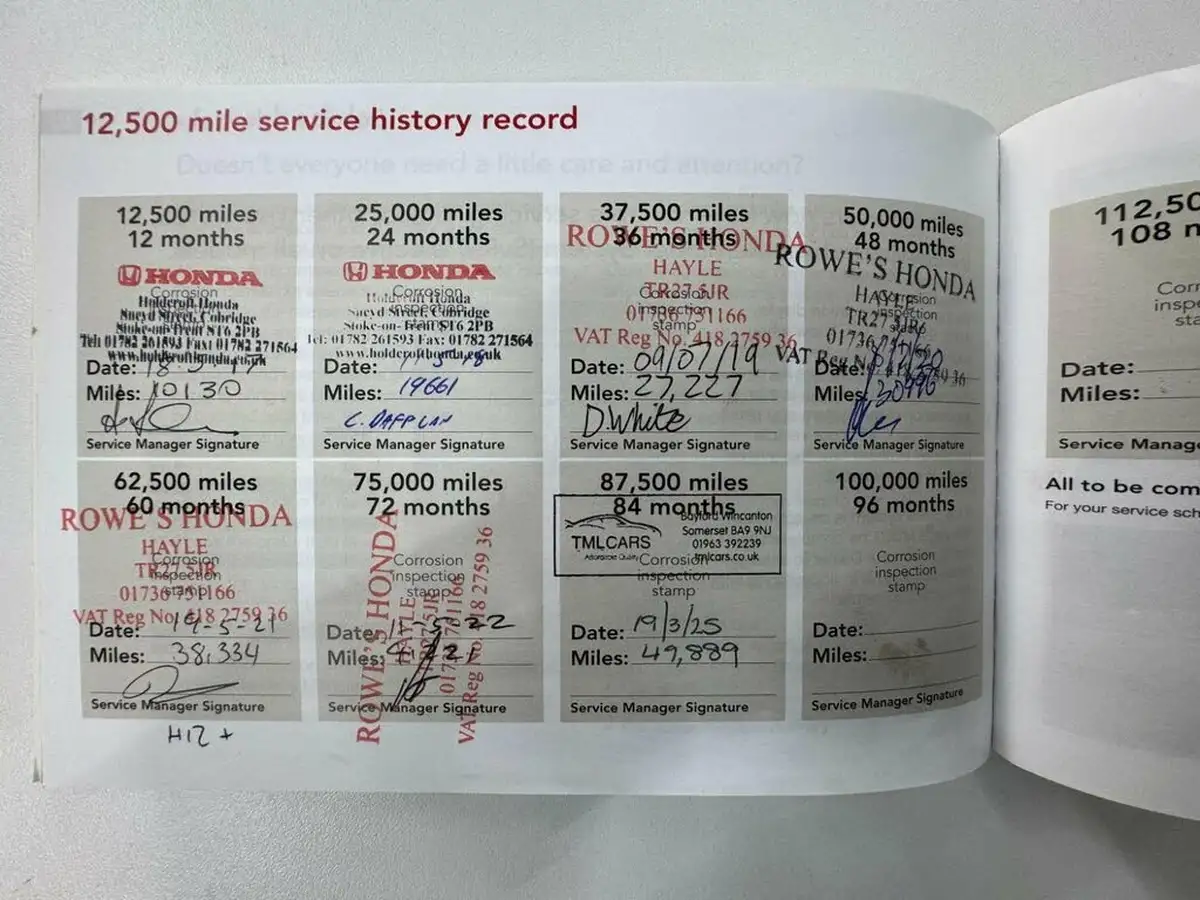 12,500 mile service history record
Doesn't everyone need a little care and attention?
12,500 miles
12 months
HONDA
Corrosion
Holdcroft Honda
Sneyd Street, Cobridge
Stoke-on-Trent ST6 2PB
Tel: 01782 261593 Fax: 01782 271564
www.holdcrofthonda.co.uk
Date:
Miles: 10130
Service Manager Signature
25,000 miles
24 months
HONDA
Holdcroft Honda
Corrosion
inspection
Sneyd Street, Cobridge
stamp
Stoke-on-Trent ST6 2PB
Tel: 01782 261593 Fax: 01782 271564
www.holdcrofthonda.co.uk
Date:
Miles: 19661
Service Manager Signature
37,500 miles
36 months
ROWE'S HONDA
HAYLE
TR27 5JR
Corrosion
inspection
01736 751166
stamp
VAT Reg No. 418 2759 36
Date: 09/07/19
Miles: 27,227
D.White
Service Manager Signature
50,000 miles
48 months
ROWE'S HONDA
HAYLE
Corrosion
inspection
stamp
VAT Reg No
Date:
Miles:
Service Manager Signature
62,500 miles
60 months
ROWE'S HONDA
HAYLE
Corrosion
TR27 5JR
inspection
stamp
01736 751166
VAT Reg No. 418 2759 36
Date: 19-5-21
Miles: 38,334
Service Manager Signature
75,000 miles
72 months
ROWE'S HONDA
HAYLE
TR27 5JR
01736 751166
VAT Reg No. 418 2759 36
Corrosion
inspection
stamp
Date:
Miles:
Service Manager Signature
87,500 miles
84 months
TMLCARS
Affordable Quality
Bayford Wincanton
Somerset BA9 9NJ
01963 392239
tmlcars.co.uk
Corrosion
inspection
stamp
Date: 19/3/25
Miles: 49,889
Service Manager Signature
100,000 miles
96 months
Corrosion
inspection
stamp
Date:
Miles:
Service Manager Signature
112,50
108 m
Corr
inspe
sta
Date:
Miles:
Service Manage
All to be com
For your service sch